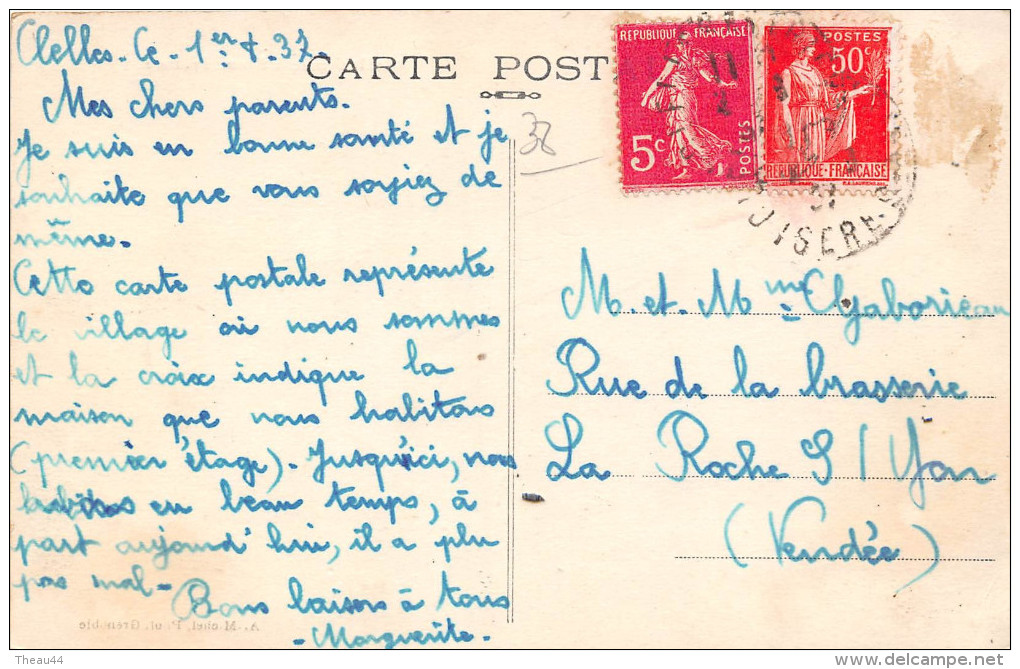 Clelles. Le 1er 8. 37.
CARTE POST
Mes chers parents.
Je suis en bonne santé et je
souhaite que vous soyiez de
même.
Cette carte postale représente
le village où nous sommes
et la croix indique la
maison que nous habitons
(premier étage). Jusqu'ici, nous
en beau temps, à
part aujourd'hui, il a plu
pas mal -
Bons baisers à tous
- Marguerite -
A. Michel, Phot. Grenoble
38
REPUBLIQUE FRANÇAISE
5c
POSTES
POSTES
50c
REPUBLIQUE-FRANÇAISE
ISERE
M. et Mme Gaborieau
Rue de la brasserie
La Roche S/Yon
(Vendée)
Theau44
www.delcampe.net